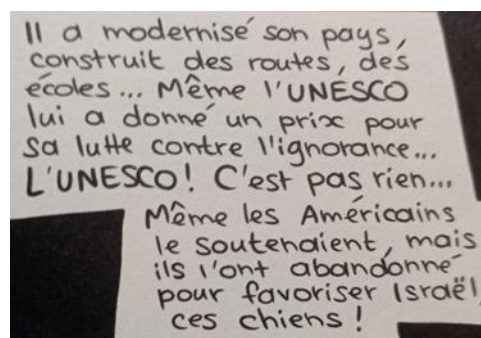 Il a modernisé son pays,
construit des routes, des
écoles... Même l'UNESCO
lui a donné un prix pour
sa lutte contre l'ignorance...
L'UNESCO! C'est pas rien...
Même les Américains
le soutenaient, mais
ils l'ont abandonné
pour favoriser Israël,
ces chiens!